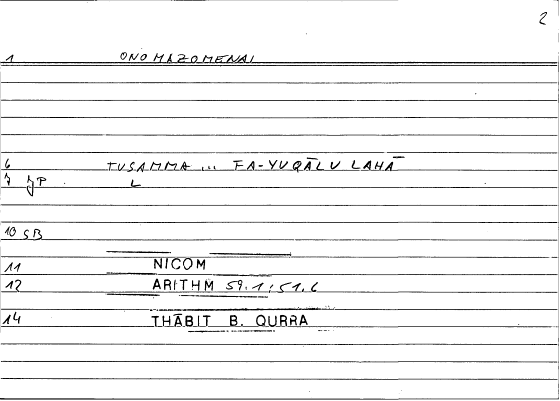 2
1 ONOMAZOMENAI
6 TUSAMMA ... FA-YUQĀLU LAHĀ
7 P L
10 SB
11 NICOM
12 ARITHM 59.1; 51.6
14 THĀBIT B. QURRA